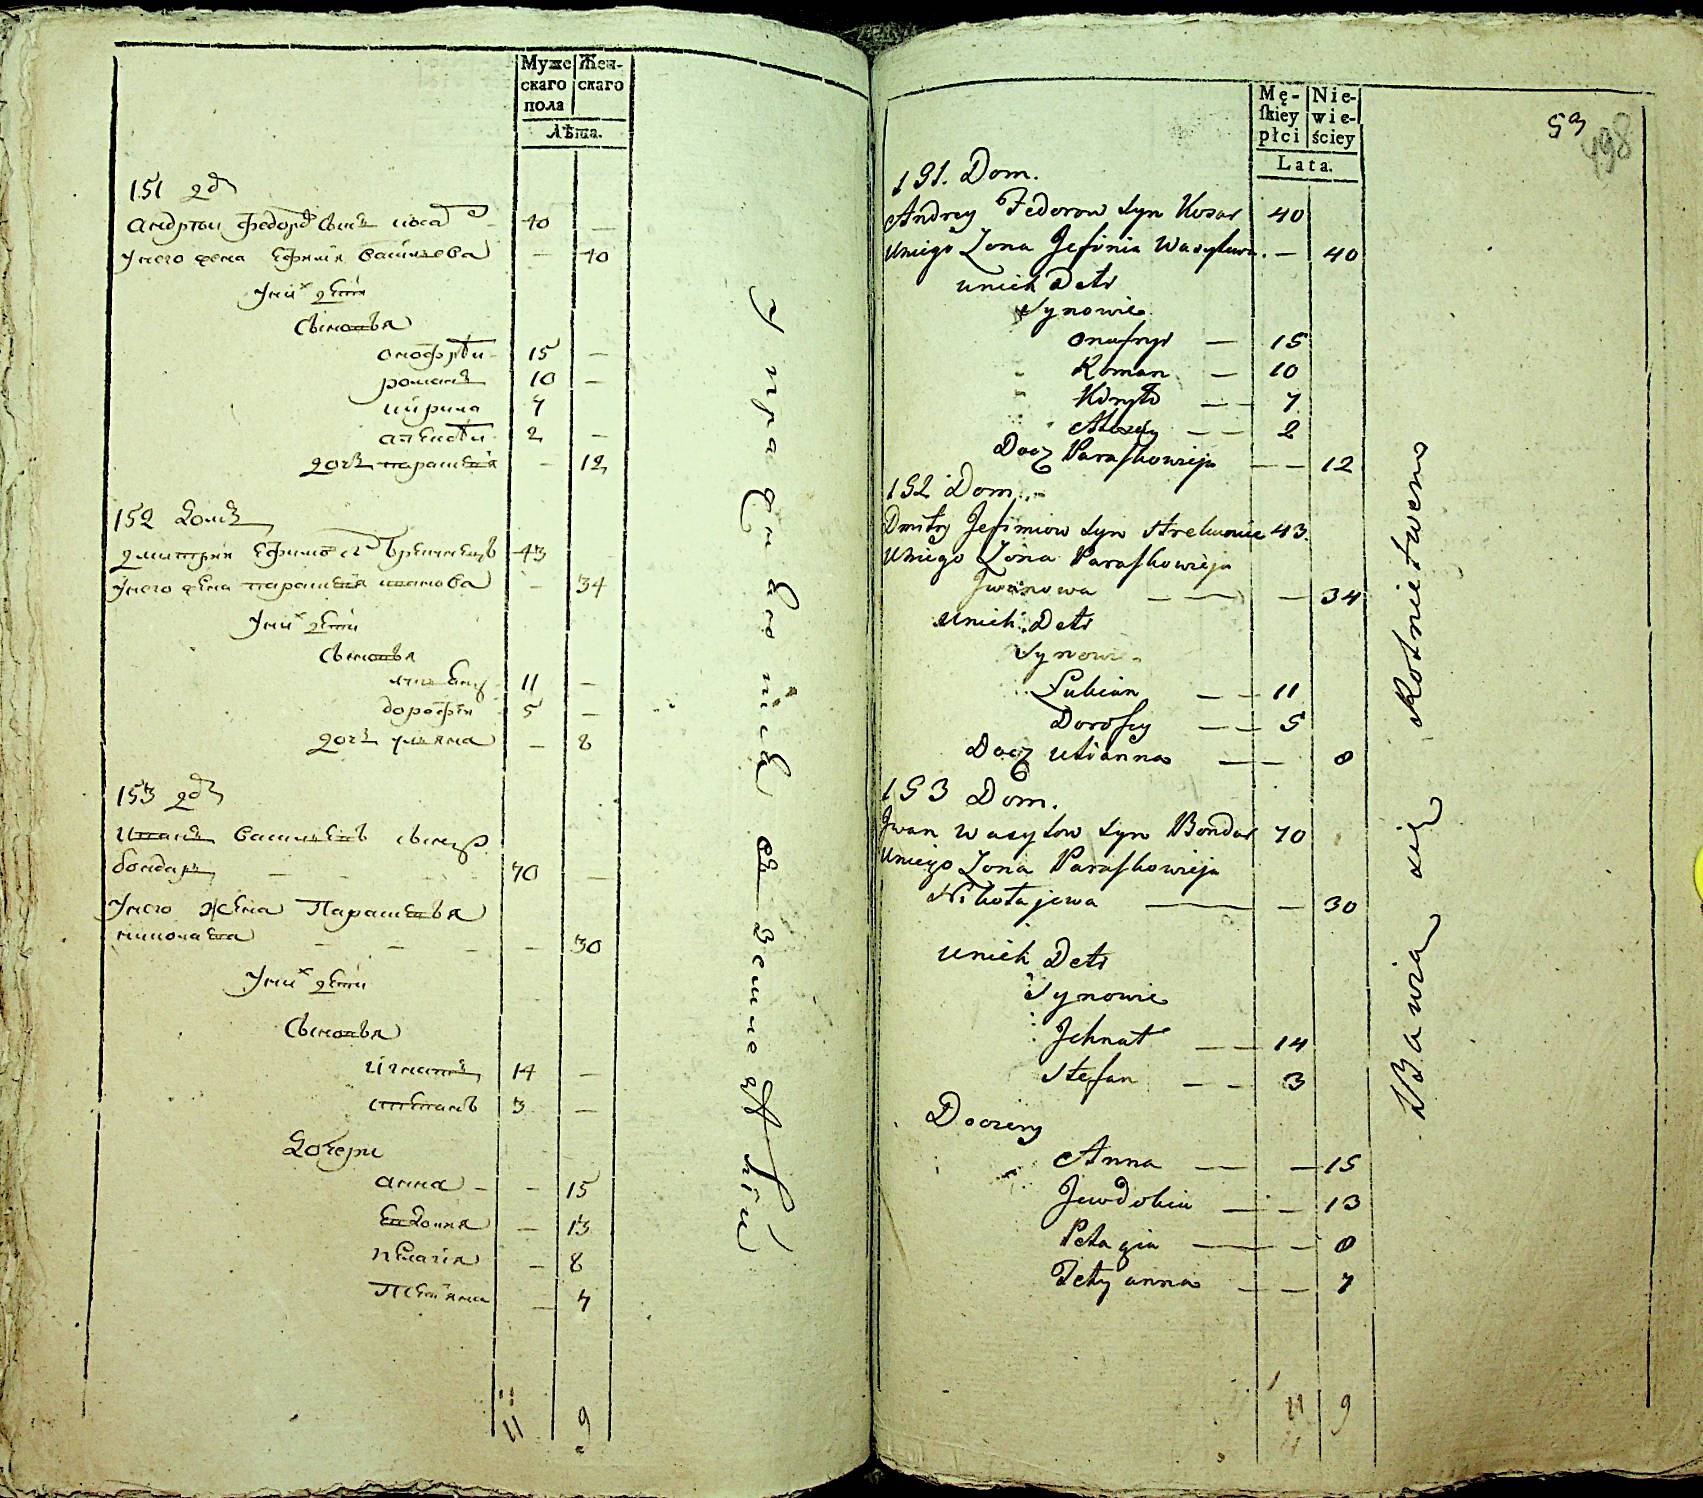 Муже
скаго
пола
Жен-
скаго
Лѣта.
151 дом
андрѣи федоров сынъ коса 40 —
Унего жена Ефимія василева — 40
Уних дети
Сыновья
онофрѣи — 15 —
романъ 10 —
кирила 7
алексѣи 2 —
дочъ парасковія — 12
152 домъ
дмитрии Ефимов с 43
Унего жена парасковія иванова — 34
Уних дети
Сыновья
11 —
дорофеи 5 —
дочъ ульяна — 8
153 домъ
иванъ василевъ сынъ
бондаръ — — 70 —
Унего жена Парасковья
николаева — — — — 30
Уних дети
Сыновья
игнатъ 14 —
степанъ 3 —
дочери
анна — — 15
Евдокия — 13
пелагія — 8
Тетяна — 7
11 9
Упражняются въ земледѣліи
Mę-
ſkiey
płci
Nie-
wie-
ściey
Lata.
53
498
151. Dom.
Andrey Fedorow syn Kosar 40
Uniego Zona Jefimia Wasylowa. — 40
Unich Deti
Synowie
Onufryi — 15
Roman — 10
Kiryło — — 7
Alexey — — 2
Docz Paraſkowieja — — 12
152 Dom.
Dmitry Jefimiow syn 43.
Uniego Zona Paraſkowieja
Jwanowa — — — 34
Unich Deti
Synowie
Łukian — — 11
Dorofey — — 5
Docz Ulianna — — 8
153 Dom.
Jwan Wasylow syn Bondar 70
Uniego Zona Paraſkowieja
Nikołajewa — — 30
Unich Deti
Synowie
Jehnat — — 14
Stefan — — 3
Doczery
Anna — — 15
Jewdokia — — 13
Pelagia — — 8
Tetyanna — — 7
11 9
11
Bawią się Rolnictwem